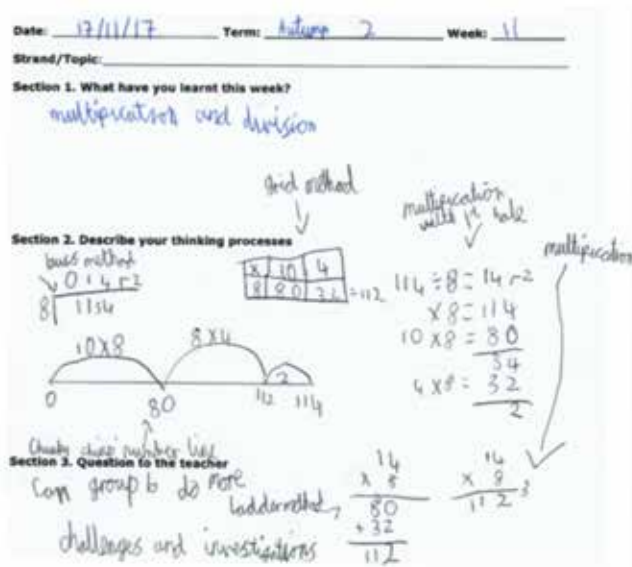 Date: 17/11/17 Term: Autumn 2 Week: 11
Strand/Topic:
Section 1. What have you learnt this week?
multiplication and division
grid method
multiplication
Section 2. Describe your thinking processes
bus method
0 1 4 r2
8 | 1134
x 10 4
8 80 32 = 112
multiplication
114 ÷ 8 = 14 r2
x 8 = 114
10 x 8 = 80
34
4 x 8 = 32
2
10x8 8x4 2
0 80 112 114
Chunky number line
Section 3. Question to the teacher
Can group b do more
challenges and investigations
Ladder method
14
x 8
80
+ 32
112
14
x 8
112
3